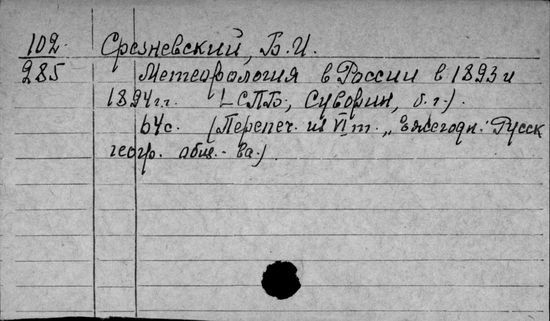 102. Срезневский, Б.И.
285 Метеорология в России в 1893 и
1894 г.г. СПБ, Суворин, б.г.)
64с. (Перепеч. из VI т. „Ежегодн. Русск
геогр. общ.-ва.)